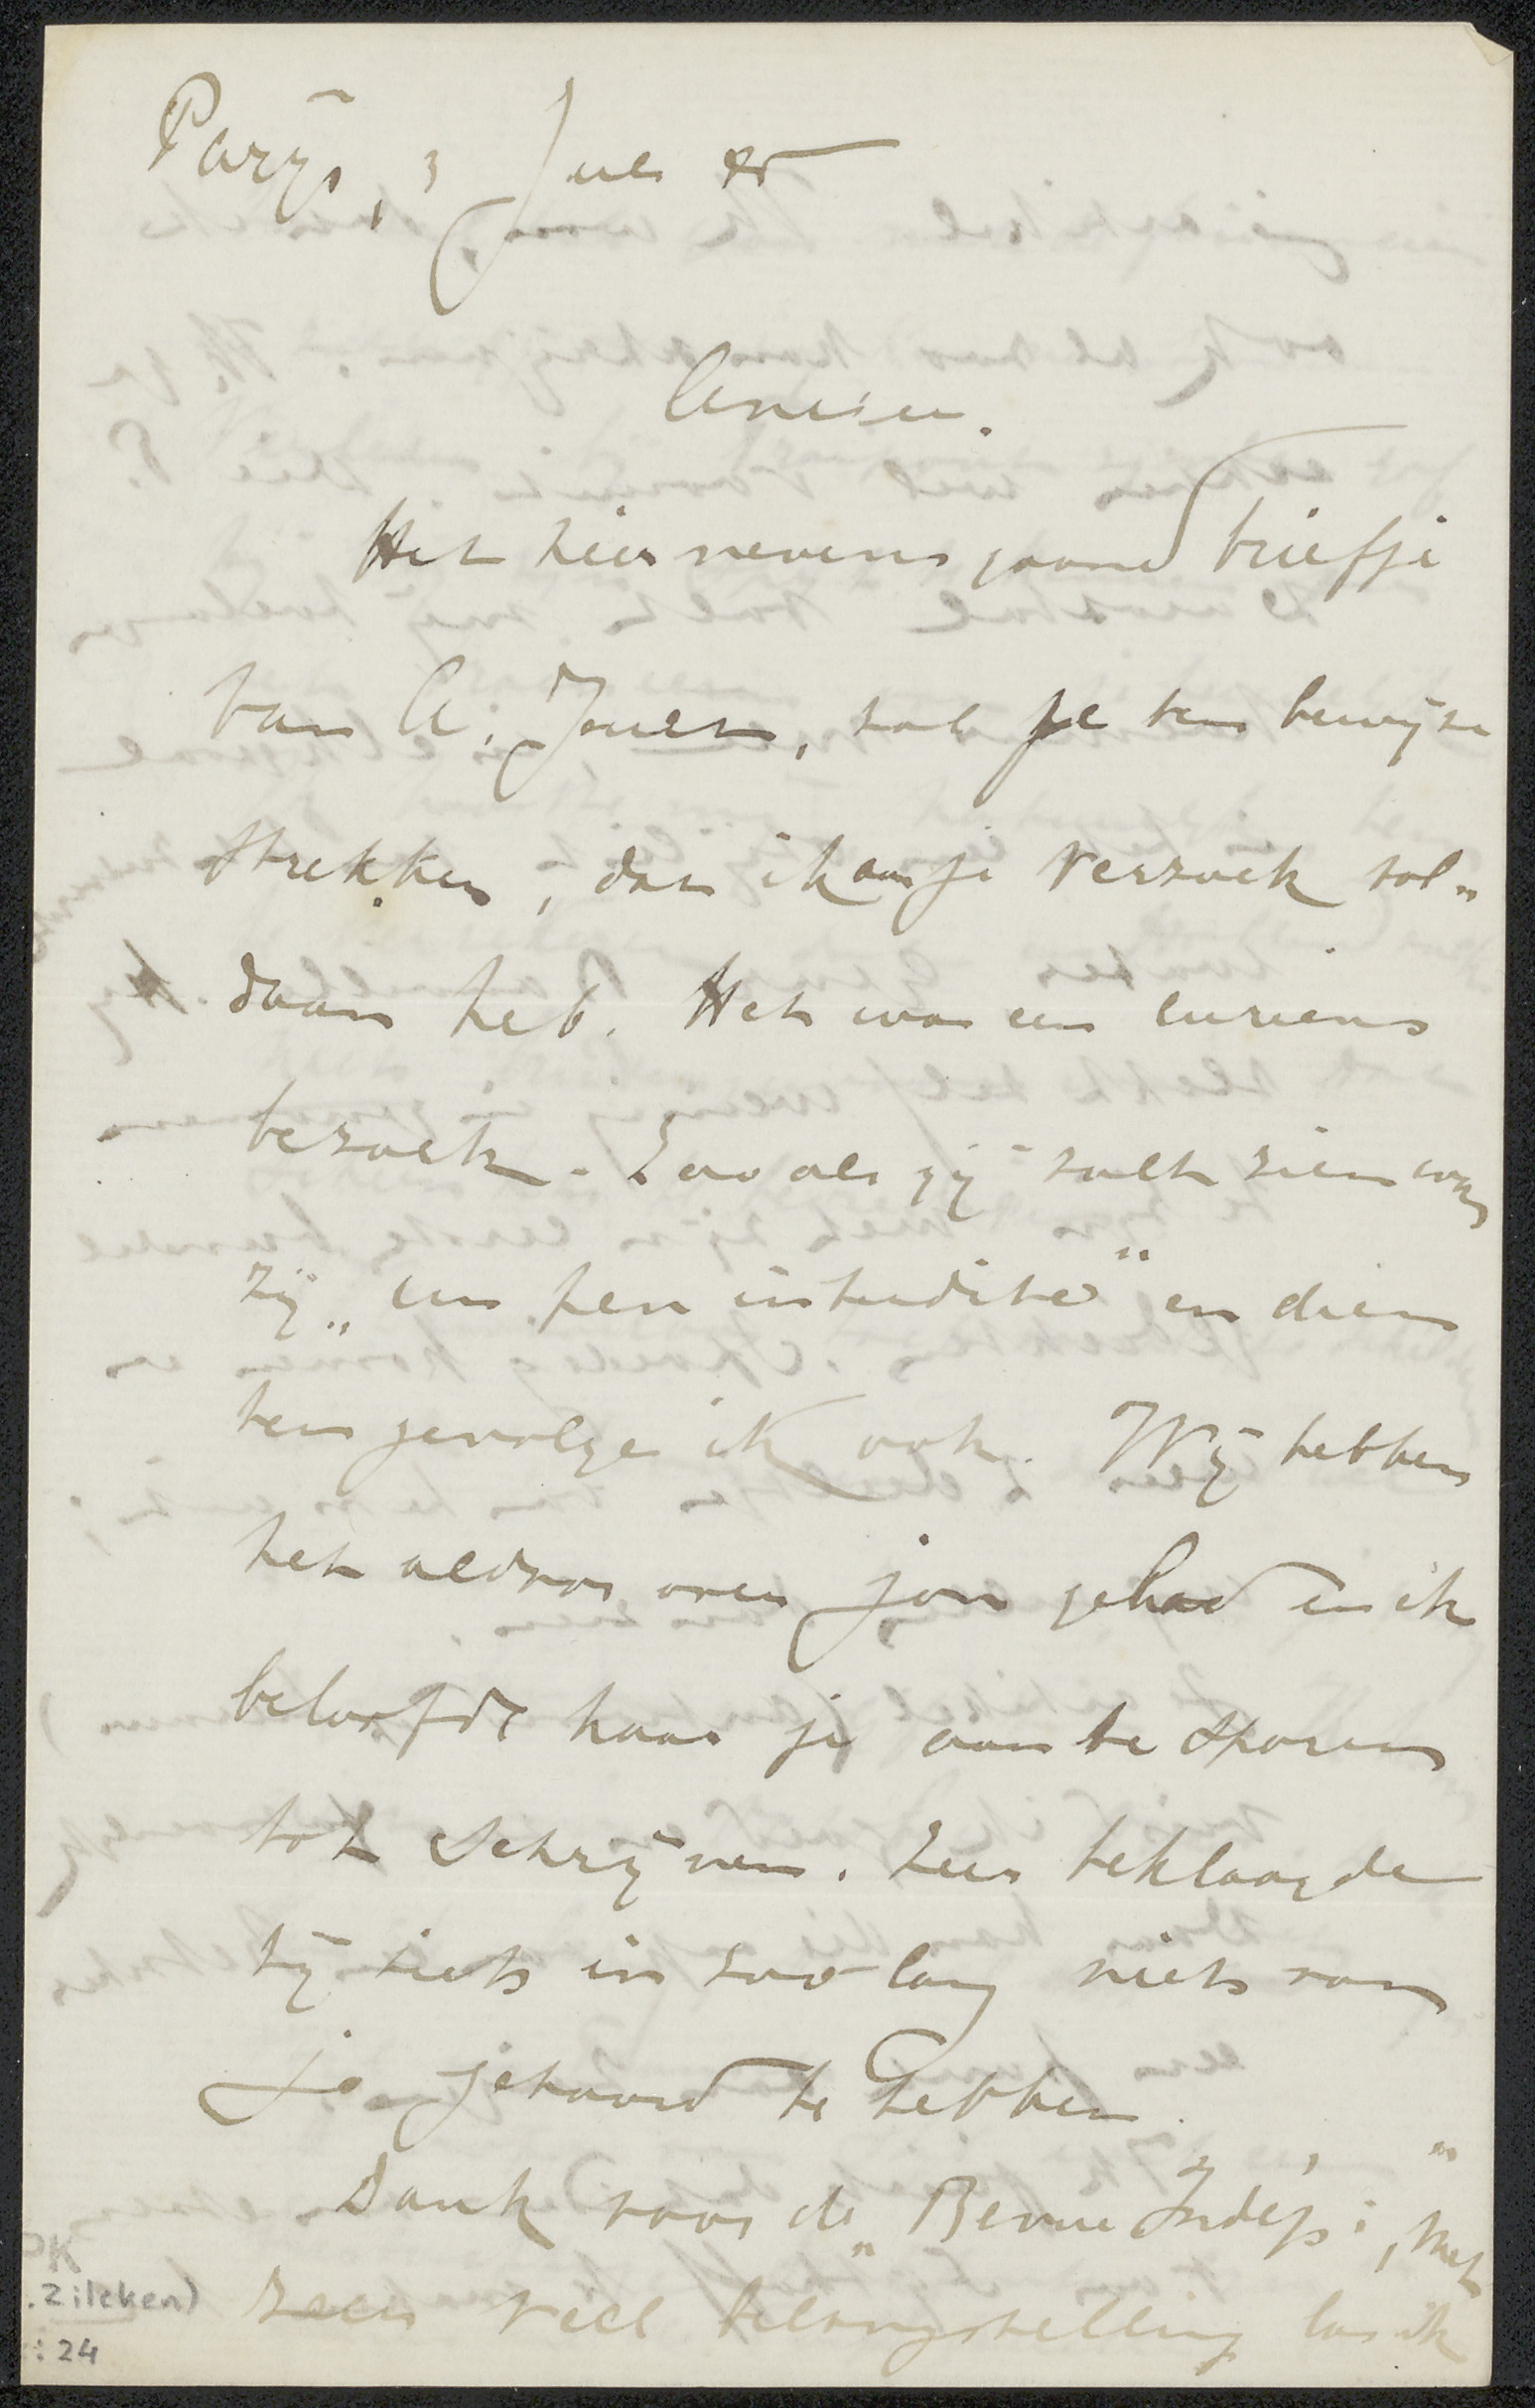 Parijs, 3 Juli 85
Amice.
Het hiernevensgaand briefje
van A. , zal je ten bewijze
strekken, dat ik aan je verzoek vol„
daan heb. Het was een curieus
bezoek. Zooals gij zult zien was
zij „un peu interdite" en dien
ten gevolge ik ook. Wij hebben
het aldoor over jou gehad en ik
beloofde haar je aan te sporen
tot schrijven. Zeer beklaagde
zij zich in zoo lang niets van
je gehoord te hebben.
Dank voor de „Revue Indép:", met
zeer veel belangstelling las ik
PK
. Zilcken)
: 24